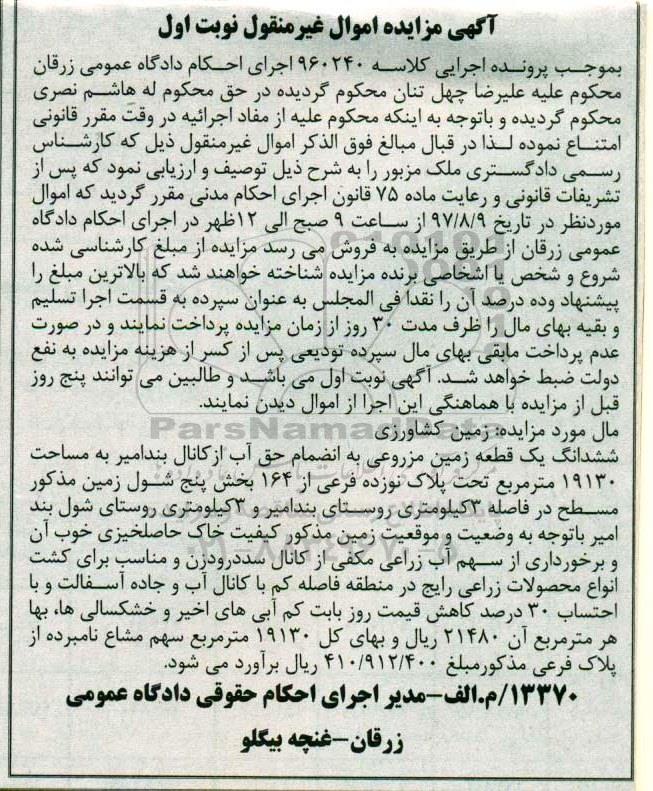 آگهی مزایده اموال غیرمنقول نوبت اول
بموجب پرونده اجرایی کلاسه ۹۶۰۲۴۰ اجرای احکام دادگاه عمومی زرقان
محکوم علیه علیرضا چهل تنان محکوم گردیده در حق محکوم له هاشم نصری
محکوم گردیده و باتوجه به اینکه محکوم علیه از مفاد اجرائیه در وقت مقرر قانونی
امتناع نموده لذا در قبال مبالغ فوق الذکر اموال غیرمنقول ذیل که کارشناس
رسمی دادگستری ملک مزبور را به شرح ذیل توصیف و ارزیابی نمود که پس از
تشریفات قانونی و رعایت ماده ۷۵ قانون اجرای احکام مدنی مقرر گردید که اموال
موردنظر در تاریخ ۹۷/۸/۹ از ساعت ۹ صبح الی ۱۲ظهر در اجرای احکام دادگاه
عمومی زرقان از طریق مزایده به فروش می رسد مزایده از مبلغ کارشناسی شده
شروع و شخص یا اشخاصی برنده مزایده شناخته خواهند شد که بالاترین مبلغ را
پیشنهاد وده درصد آن را نقدا فی المجلس به عنوان سپرده به قسمت اجرا تسلیم
و بقیه بهای مال را ظرف مدت ۳۰ روز از زمان مزایده پرداخت نمایند و در صورت
عدم پرداخت مابقی بهای مال سپرده تودیعی پس از کسر از هزینه مزایده به نفع
دولت ضبط خواهد شد. آگهی نوبت اول می باشد و طالبین می توانند پنج روز
قبل از مزایده با هماهنگی این اجرا از اموال دیدن نمایند.
ParsNamadData
مال مورد مزایده: زمین کشاورزی
ششدانگ یک قطعه زمین مزروعی به انضمام حق آب ازکانال بندامیر به مساحت
۱۹۱۳۰ مترمربع تحت پلاک نوزده فرعی از ۱۶۴ بخش پنج شول زمین مذکور
مسطح در فاصله ۳کیلومتری روستای بندامیر و ۳کیلومتری روستای شول بند
امیر باتوجه به وضعیت و موقعیت زمین مذکور کیفیت خاک حاصلخیزی خوب آن
و برخورداری از سهم آب زراعی مکفی از کانال سددرودزن و مناسب برای کشت
انواع محصولات زراعی رایج در منطقه فاصله کم با کانال آب و جاده آسفالت و با
احتساب ۳۰ درصد کاهش قیمت روز بابت کم آبی های اخیر و خشکسالی ها، بها
هر مترمربع آن ۲۱۴۸۰ ریال و بهای کل ۱۹۱۳۰ مترمربع سهم مشاع نامبرده از
پلاک فرعی مذکورمبلغ ۴۱۰/۹۱۲/۴۰۰ ریال برآورد می شود.
۱۳۳۷۰/م.الف-مدیر اجرای احکام حقوقی دادگاه عمومی
زرقان-غنچه بیگلو